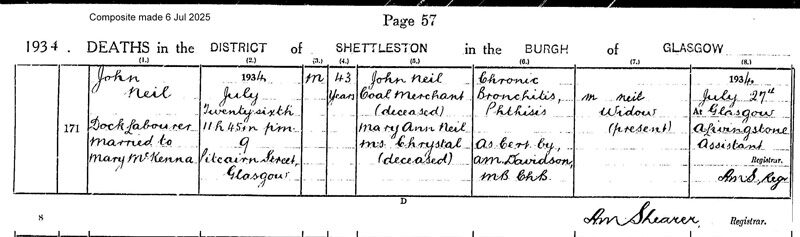 Composite made 6 Jul 2025
Page 57
1934. DEATHS in the DISTRICT of SHETTLESTON in the BURGH of GLASGOW
(1.) (2.) (3.) (4.) (5.) (6.) (7.) (8.)
171
John
Neil
Dock Labourer
Married to
Mary McKenna
1934,
July
Twenty sixth
11 h 45 m pm.
9
Pitcairn Street,
Glasgow
M
43
Years
John Neil
Coal Merchant
(deceased)
Mary Ann Neil
ms. Chrystal
(deceased)
Chronic
Bronchitis,
Phthisis
As Cert. by,
Am. Davidson,
MB ChB.
M neil
Widow
(present)
1934,
July 27th
At Glasgow
A Livingstone
Assistant
Registrar.
AmS. Regr
D
8
Am Shearer, Registrar.